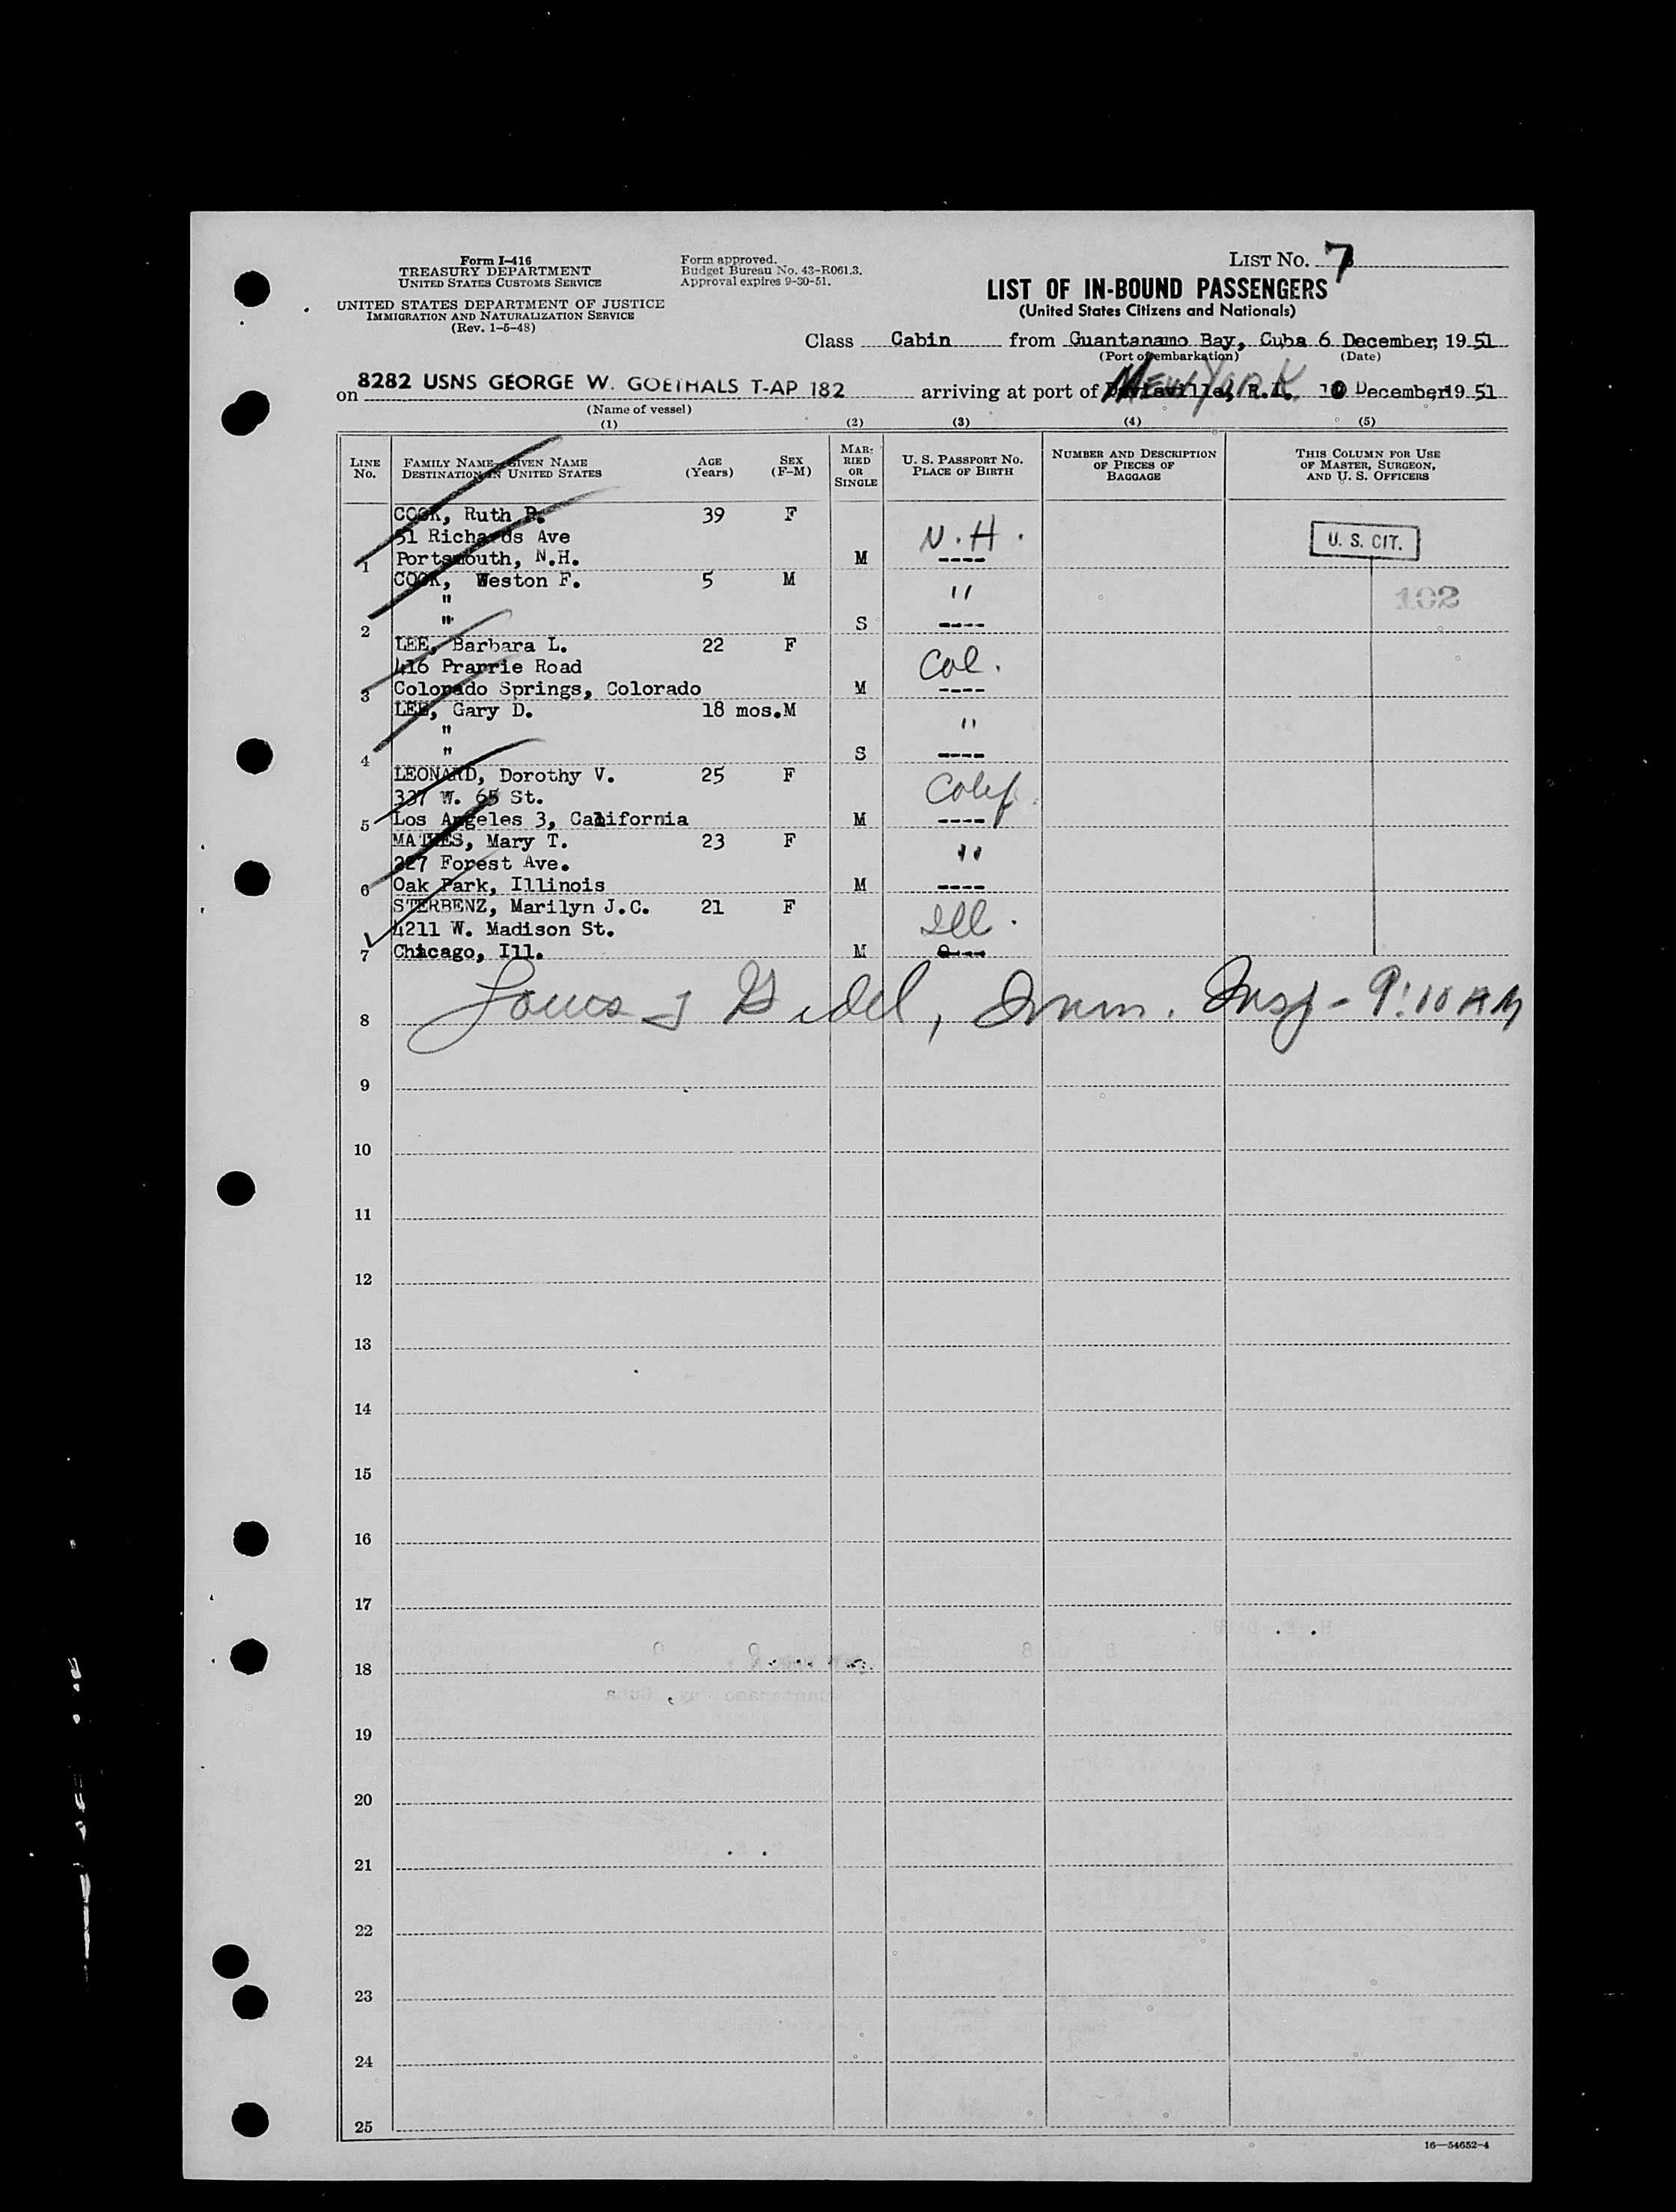 Form I-416
TREASURY DEPARTMENT
UNITED STATES CUSTOMS SERVICE
UNITED STATES DEPARTMENT OF JUSTICE
IMMIGRATION AND NATURALIZATION SERVICE
(Rev. 1-5-48)
Form approved.
Budget Bureau No. 43-R061.3.
Approval expires 9-30-51.
LIST NO. 7
LIST OF IN-BOUND PASSENGERS
(United States Citizens and Nationals)
Class Cabin from Guantanamo Bay, Cuba 6 December, 19 51
(Port of embarkation) (Date)
on 8282 USNS GEORGE W. GOETHALS T-AP 182 arriving at port of New York R.I. 10 December, 19 51
(Name of vessel)
(1) (2) (3) (4) (5)
LINE NO. FAMILY NAME—GIVEN NAME DESTINATION IN UNITED STATES AGE (Years) SEX (F-M) MARRIED OR SINGLE U. S. PASSPORT NO. PLACE OF BIRTH NUMBER AND DESCRIPTION OF PIECES OF BAGGAGE THIS COLUMN FOR USE OF MASTER, SURGEON, AND U. S. OFFICERS
COOK, Ruth P. 39 F
51 Richards Ave N.H. U. S. CIT.
1 Portsmouth, N.H. M ----
COOK, Weston F. 5 M
" " 102
2 " S ----
LEE, Barbara L. 22 F
416 Prarrie Road Col.
3 Colorado Springs, Colorado M ----
LEE, Gary D. 18 mos. M
" "
4 " S ----
LEONARD, Dorothy V. 25 F
337 W. 65 St. Calif.
5 Los Angeles 3, California M ----
MATHES, Mary T. 23 F
227 Forest Ave. "
6 Oak Park, Illinois M ----
STERBENZ, Marilyn J.C. 21 F
4211 W. Madison St. Ill.
7 Chicago, Ill. M ----
8 Imm. Insp - 9:10 AM
9
10
11
12
13
14
15
16
17
18
19
20
21
22
23
24
25
16—54652-4